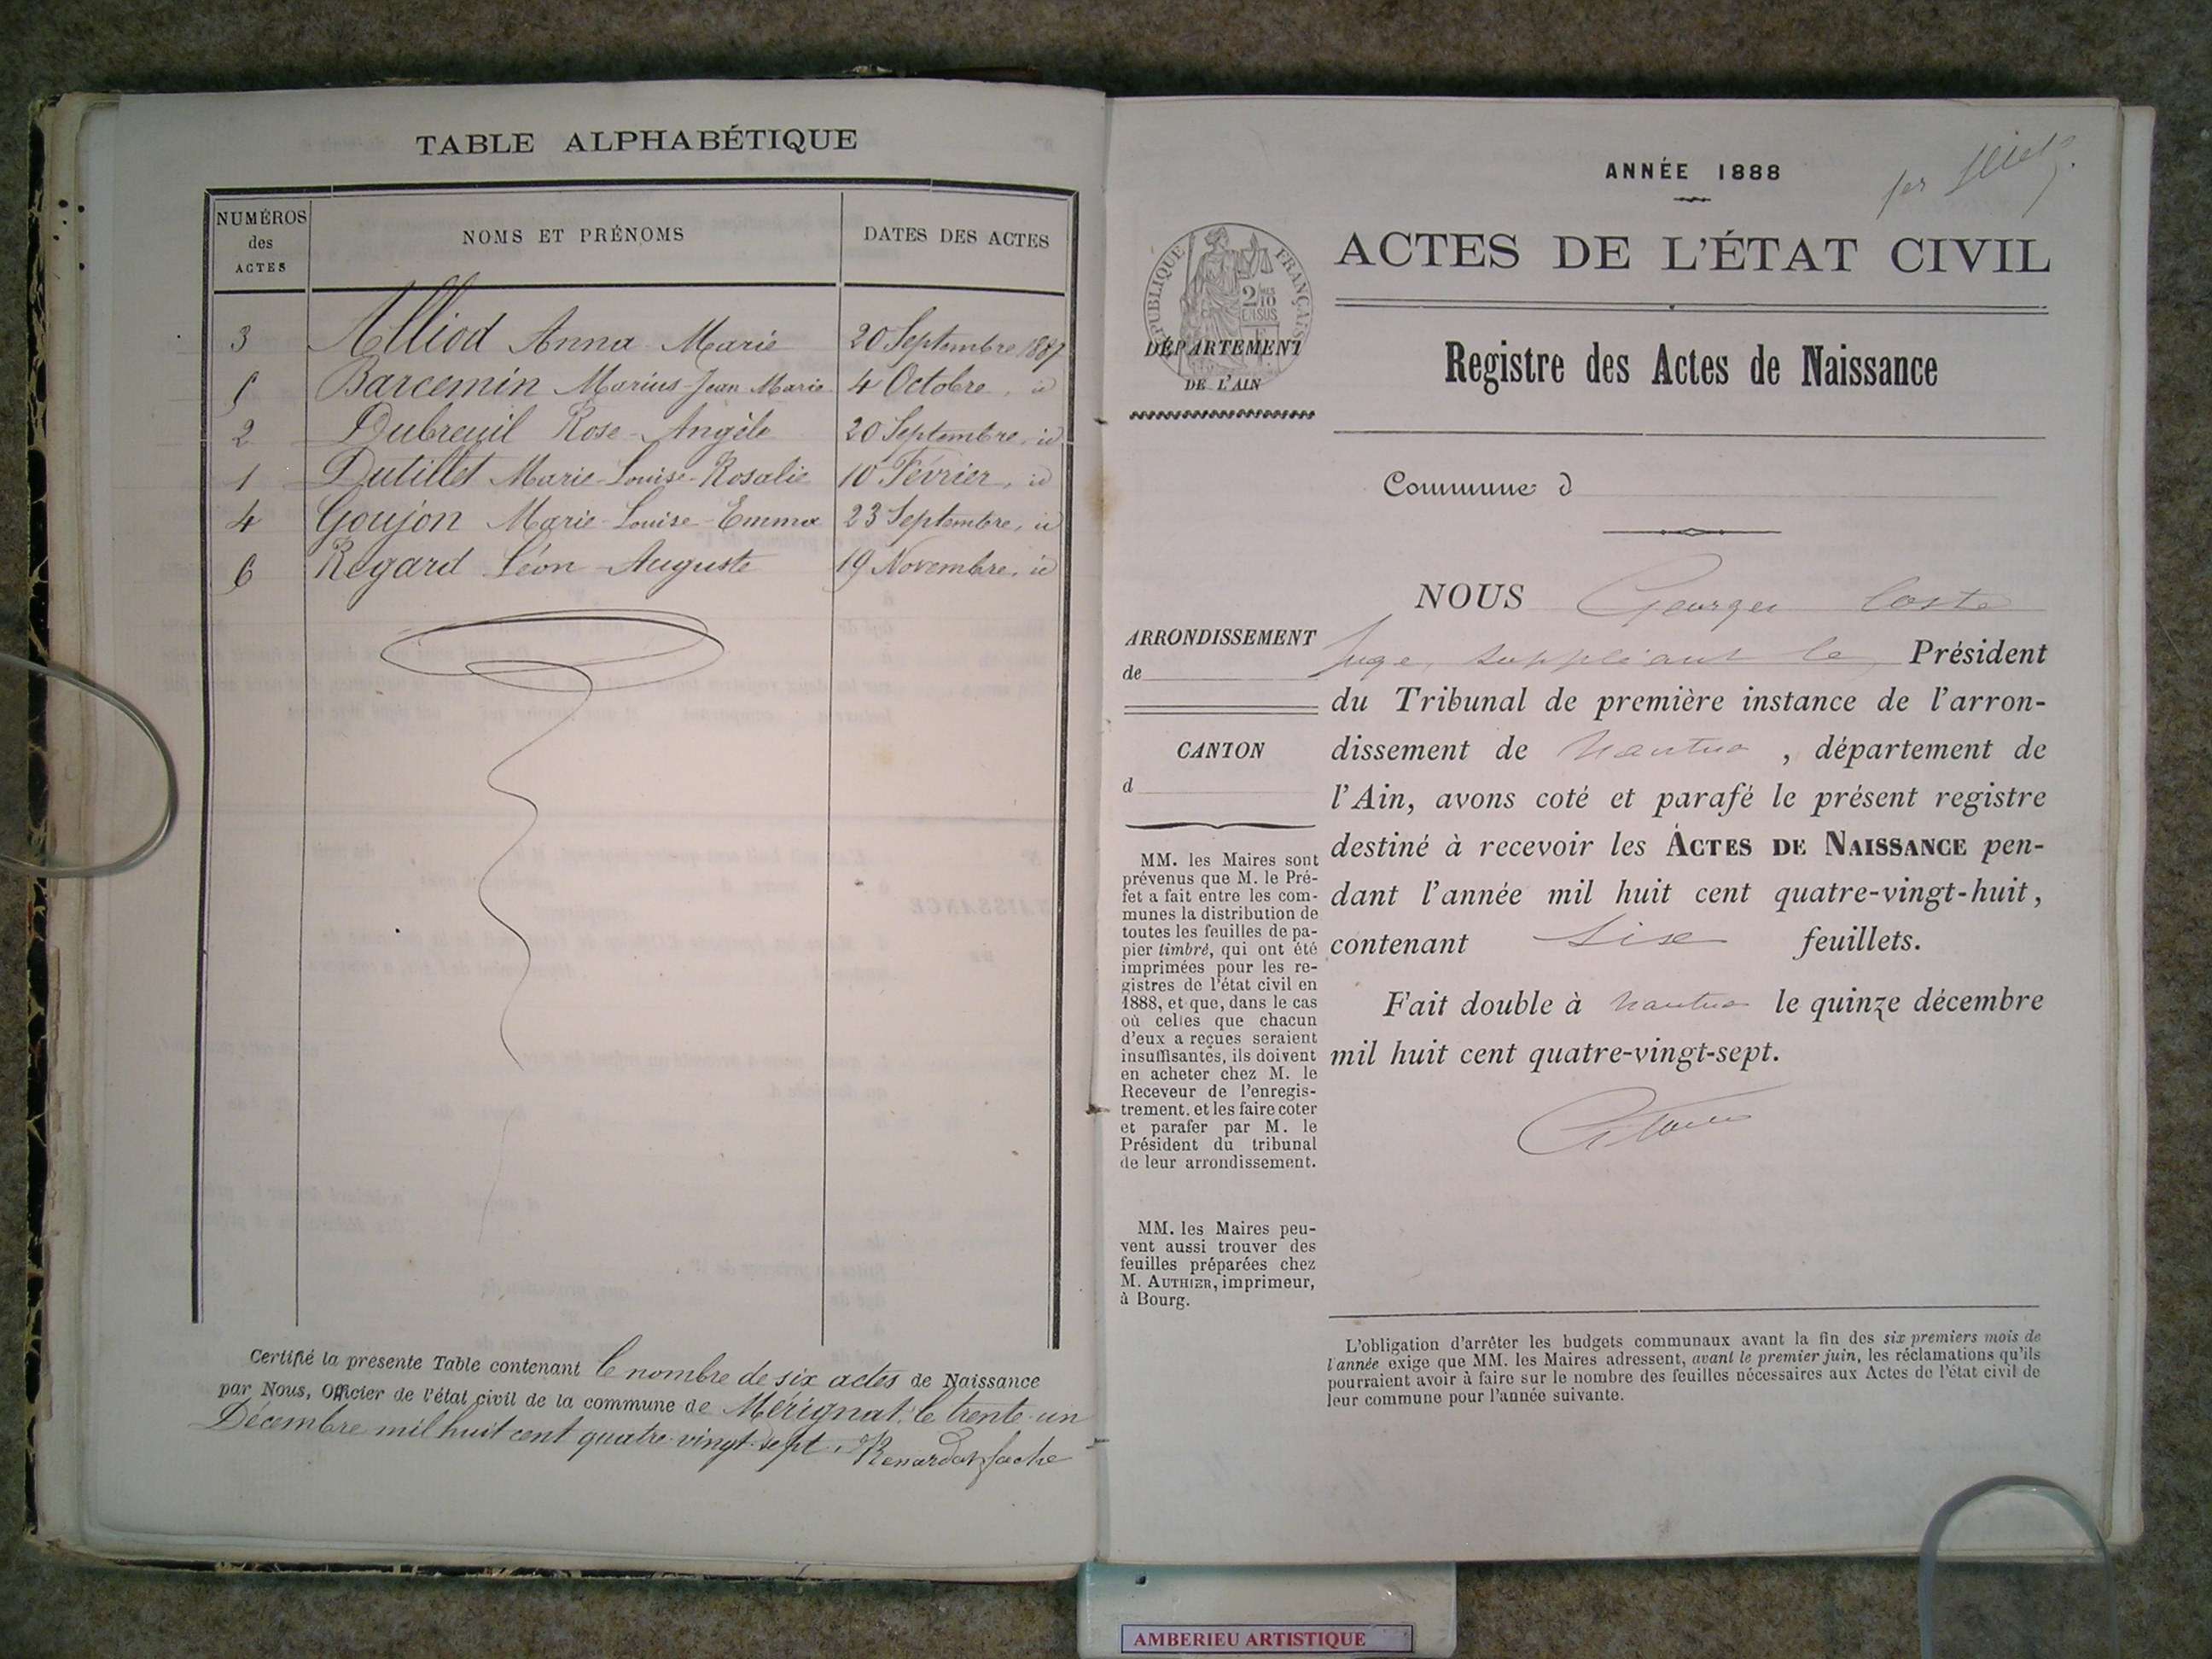 TABLE ALPHABÉTIQUE
NUMÉROS des ACTES
NOMS ET PRÉNOMS
DATES DES ACTES
3 Alliod Anna Marie 20 Septembre 1887
5 Barcemin Marius Jean Marie 4 Octobre, id
2 Dubreuil Rose-Angèle 20 Septembre, id
1 Dutillet Marie-Louise-Rosalie 10 Février, id
4 Goujon Marie-Louise-Emma 23 Septembre, id
6 Regard Léon Auguste 19 Novembre, id
Certifié la présente Table contenant le nombre de six actes de Naissance
par Nous, Officier de l'état civil de la commune de Mérignat, le trente-un
Décembre mil huit cent quatre-vingt-sept.
ANNÉE 1888
1er
ACTES DE L'ÉTAT CIVIL
RÉPUBLIQUE FRANÇAISE
2/10
EN SUS
DÉPARTEMENT
DE L'AIN
Registre des Actes de Naissance
Commune d
NOUS Georges Coste
Juge suppléant le Président
du Tribunal de première instance de l'arron-
dissement de Nantua, département de
l'Ain, avons coté et parafé le présent registre
destiné à recevoir les ACTES DE NAISSANCE pen-
dant l'année mil huit cent quatre-vingt-huit,
contenant six feuillets.
Fait double à Nantua le quinze décembre
mil huit cent quatre-vingt-sept.
ARRONDISSEMENT
de
CANTON
d
MM. les Maires sont
prévenus que M. le Pré-
fet a fait entre les com-
munes la distribution de
toutes les feuilles de pa-
pier timbré, qui ont été
imprimées pour les re-
gistres de l'état civil en
1888, et que, dans le cas
où celles que chacun
d'eux a reçues seraient
insuffisantes, ils doivent
en acheter chez M. le
Receveur de l'enregis-
trement, et les faire coter
et parafer par M. le
Président du tribunal
de leur arrondissement.
MM. les Maires peu-
vent aussi trouver des
feuilles préparées chez
M. AUTHIER, imprimeur,
à Bourg.
L'obligation d'arrêter les budgets communaux avant la fin des six premiers mois de
l'année exige que MM. les Maires adressent, avant le premier juin, les réclamations qu'ils
pourraient avoir à faire sur le nombre des feuilles nécessaires aux Actes de l'état civil de
leur commune pour l'année suivante.
AMBERIEU ARTISTIQUE